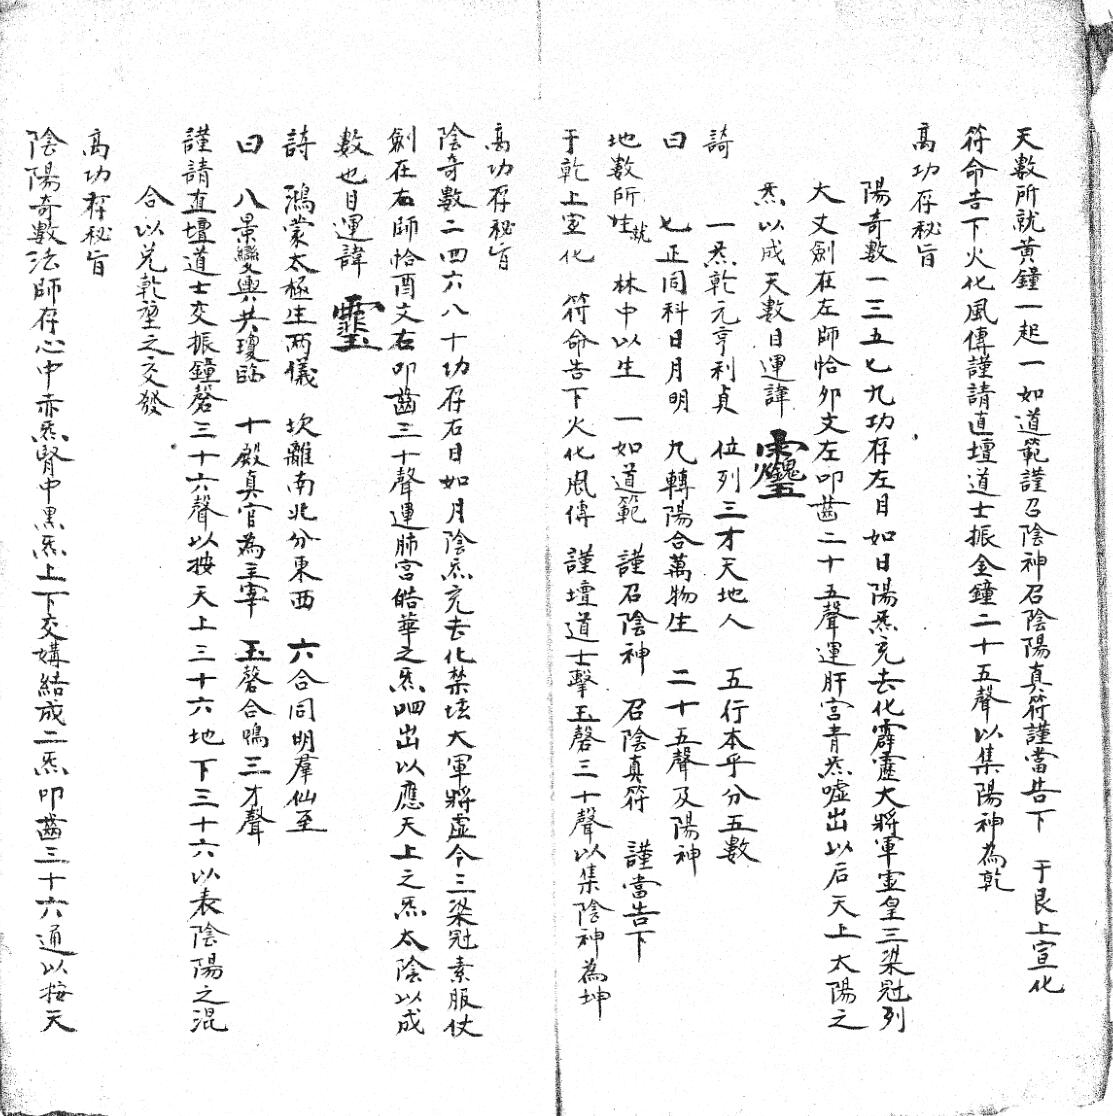 天數所就黄鐘一起一如道範謹召陰神召陰陽真符謹當告下　于艮上宣化
符命告下火化風傳謹請直壇道士振金鐘二十五聲以集陽神為乾
高功存秘旨
陽奇數一三五七九功存左目如日陽炁充去化霹靂大將軍霊皇三梁冠列
大丈劍在左師恰卯文左叩齒二十五聲運肝宮青炁噓出以后天上太陽之
炁以成天數目運諱
詩　一炁乾元亨利貞　位列三才天地人　五行本乎分五數
曰　七正同科日月明　九轉陽合萬物生　二十五聲及陽神
地數所生就　林中以生　一如道範　謹召陰神　召陰真符　謹當告下
于乾上宣化　符命告下火化風傳　謹壇道士擊玉磬三十聲以集陰神為坤
高功存秘旨
陰奇數二四六八十功存右目如月陰炁充去化禁壇大軍將虛令三梁冠素服仗
劍在右師恰酉文右叩齒三十聲運肺宮皓華之炁呬出以應天上之炁太陰以成
數也目運諱
詩　鴻蒙太極生兩儀　坎離南北分東西　六合同明羣仙至
曰　八景鸞輿共瓊臨　十殿真官為主宰　玉磬合鳴三才聲
謹請直壇道士交振鐘磬三十六聲以按天上三十六地下三十六以表陰陽之混
合以兌乾堃之交發
高功存秘旨
陰陽奇數法師存心中赤炁腎中黑炁上下交媾結成二炁叩齒三十六通以按天